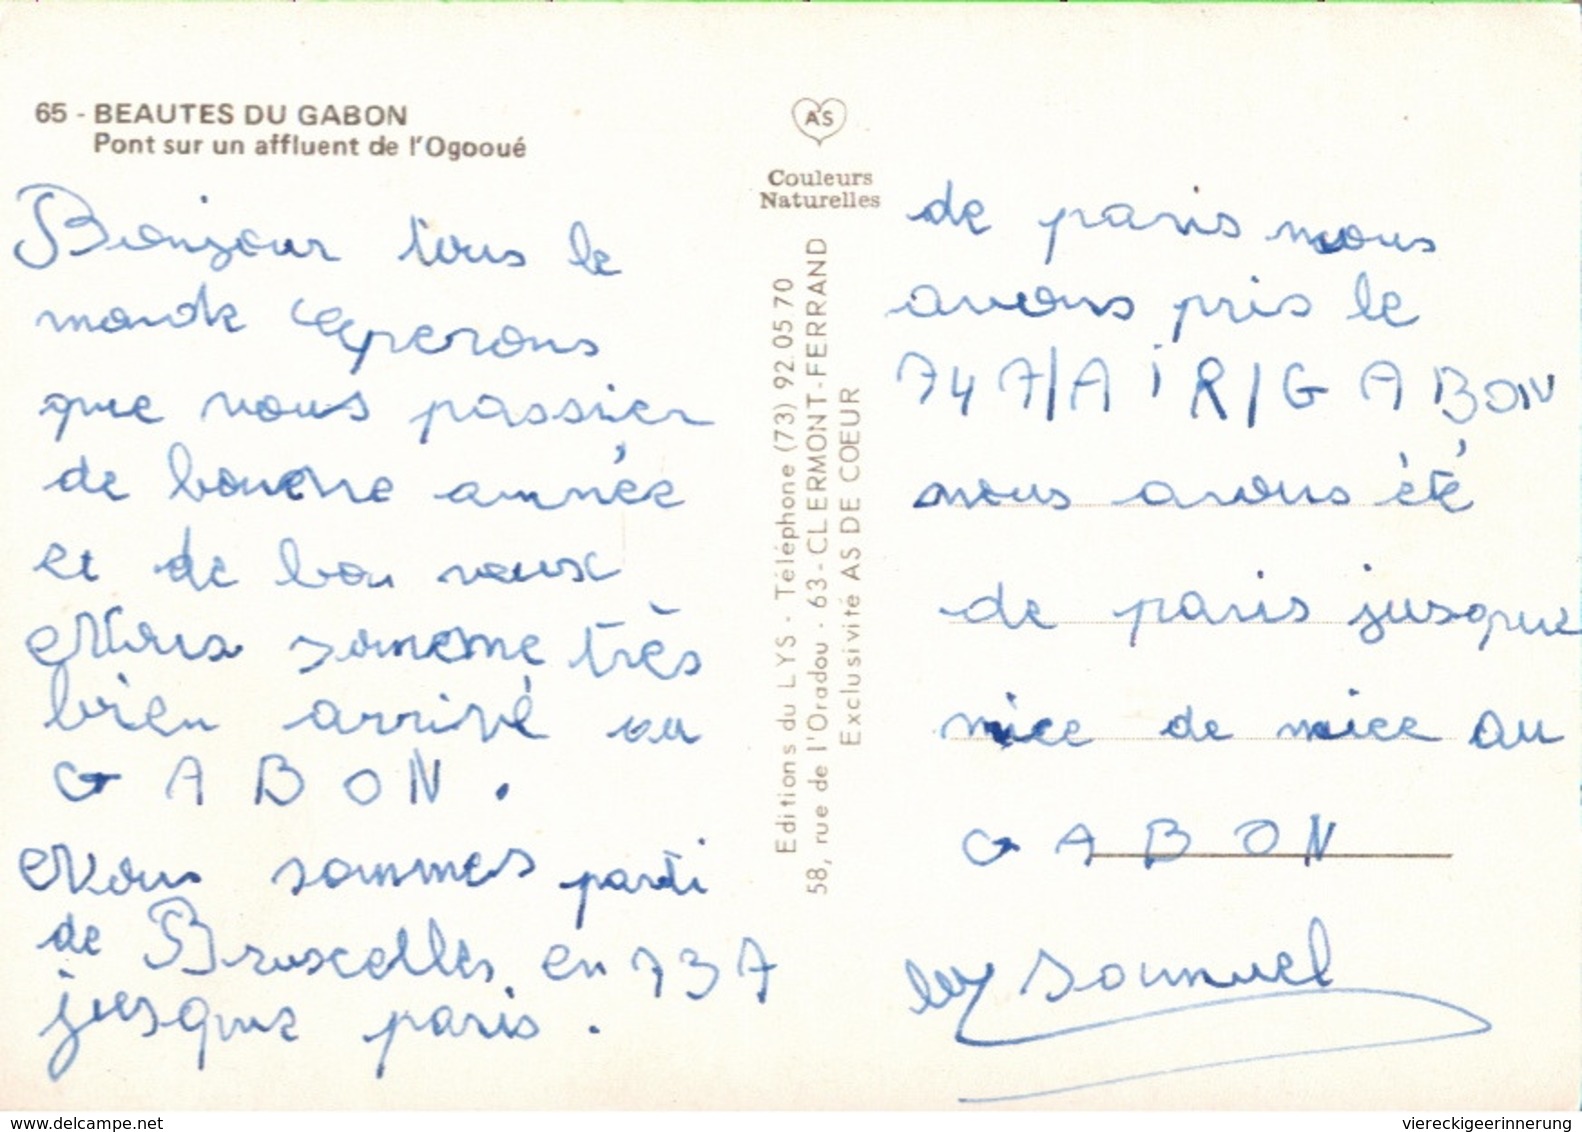 65 - BEAUTES DU GABON
Pont sur un affluent de l'Ogooué
Bonjour tous le
monde esperons
que vous passier
de bonne année
et de bon veux
Nous somme très
bien arrivé au
GABON.
Nous sommes parti
de Bruxelles en 737
jusque paris.
AS
Couleurs
Naturelles
Editions du LYS - Téléphone (73) 92 05 70
58, rue de l'Oradou - 63 - CLERMONT-FERRAND
Exclusivité AS DE COEUR
de paris nous
avons pris le
747/AiR/GABON
nous avons été
de paris jusque
nice de nice au
GABON
by Samuel
www.delcampe.net
viereckigeerinnerung